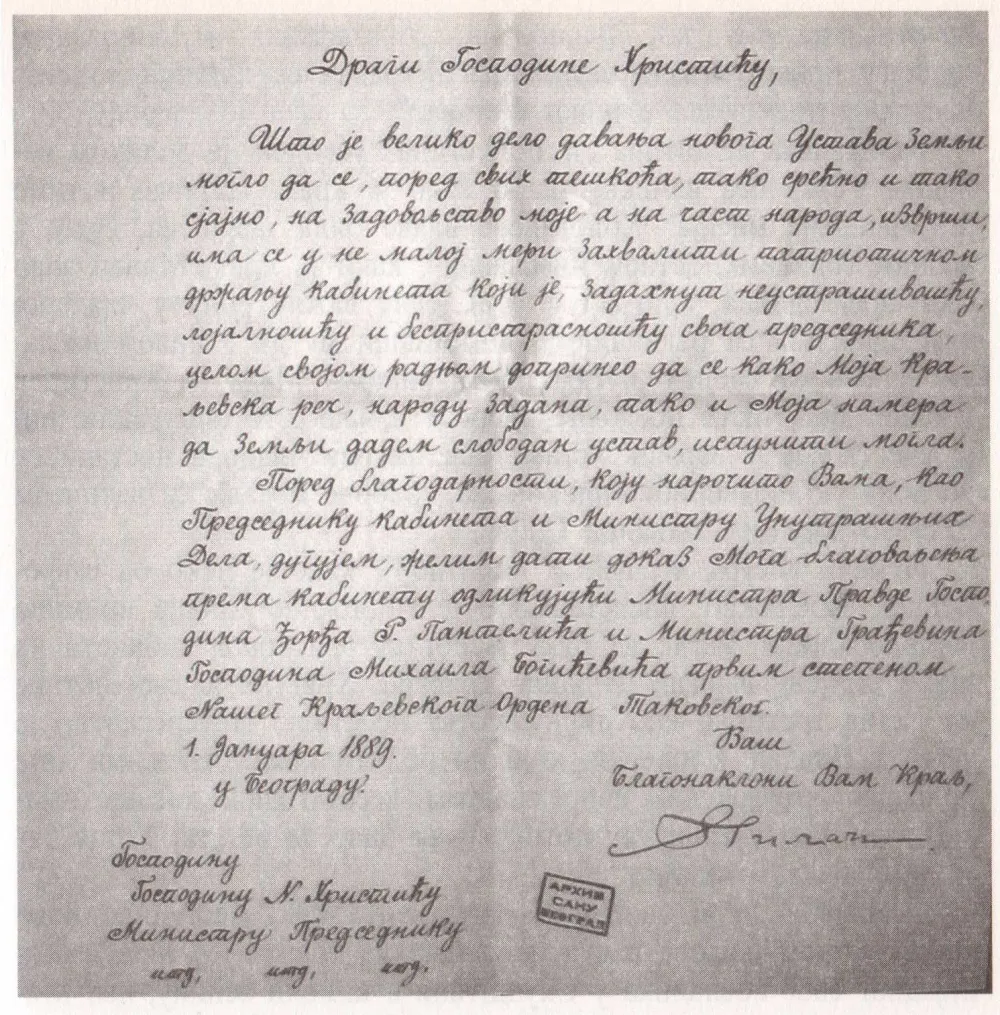 Драги Господине Христићу,
Што је велико дело давања новога Устава Земљи
могло да се, поред свих тешкоћа, тако срећно и тако
сјајно, на задовољство моје а на част народа, изврши,
има се у не малој мери захвалити патриотичном
држању кабинета који је, задахнут неустрашивошћу,
лојалношћу и беспристрасношћу свога председника,
целом својом радњом допринео да се како Моја Кра-
љевска реч, народу задана, тако и Моја намера
да Земљи дадем слободан устав, испунити могла.
Поред благодарности, коју нарочито Вама, као
Председнику кабинета и Министру Унутрашњих
Дела, дугујем, желим дати доказ Мога благовољења
према кабинету одликујући Министра Правде Госпо-
дина Ђорђа Р. Пантелића и Министра Грађевина
Господина Михаила Богићевића првим степеном
Нашег Краљевскога Ордена Таковског.
1. Јануара 1889.
у Београду.
Ваш
Благонаклони Вам Краљ,
Милан
Господину
Господину Н. Христићу
Министру Председнику
итд, итд, итд.
АРХИВ
САНУ
БЕОГРАД